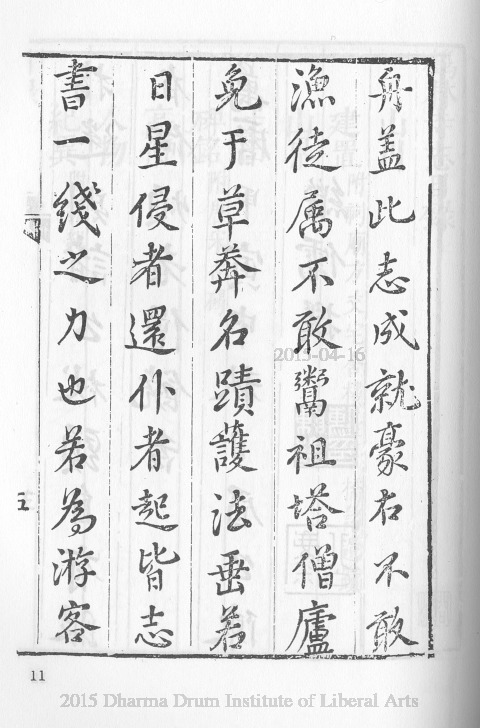 舟盖此志成就豪右不敢
漁徒属不敢鬻祖塔僧廬
免于草莽名蹟護法垂若
日星侵者還仆者起皆志
書一綫之力也若為游客
五
11
2015-04-16
2015 Dharma Drum Institute of Liberal Arts